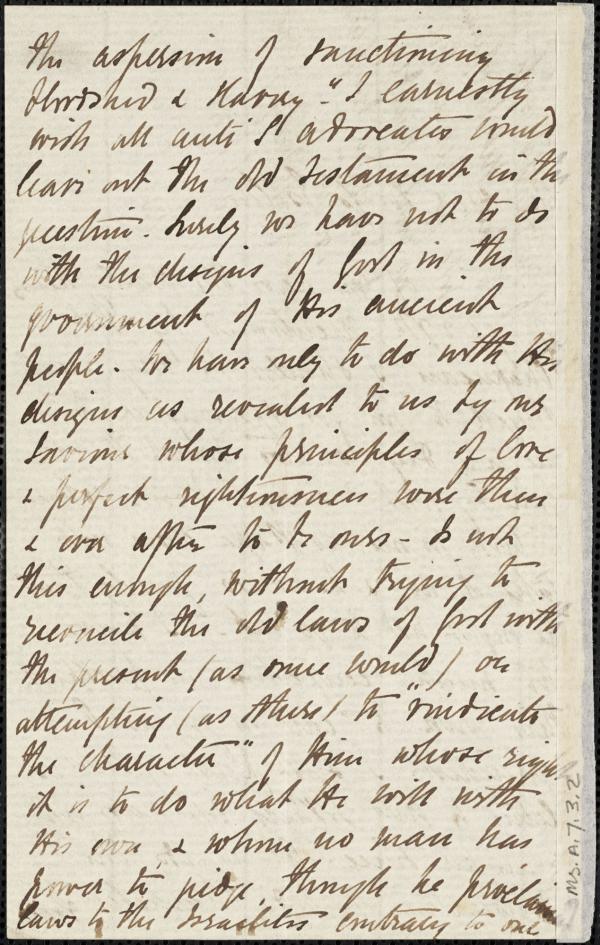 the aspersion of sanctioning
bloodshed & slavery". I earnestly
wish all anti S advocates would
leave out the old Testament in the
question. Surely we have not to do
with the designs of God in the
government of His ancient
people. We have only to do with His
designs as revealed to us by our
Saviour whose principles of love
& perfect righteousness were then
& ever after to be ours - Is not
this enough, without trying to
reconcile the old laws of God with
the present (as some would) or
attempting (as others) to "vindicate
the character" of Him whose right
it is to do what He will with
His own, & whom no man has
power to judge, though he proclaim
laws to the Israelites contrary to our
Ms. A.7.3.2